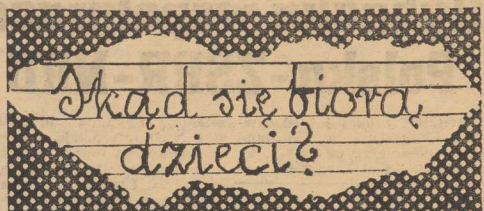 Skąd się biorą
dzieci?